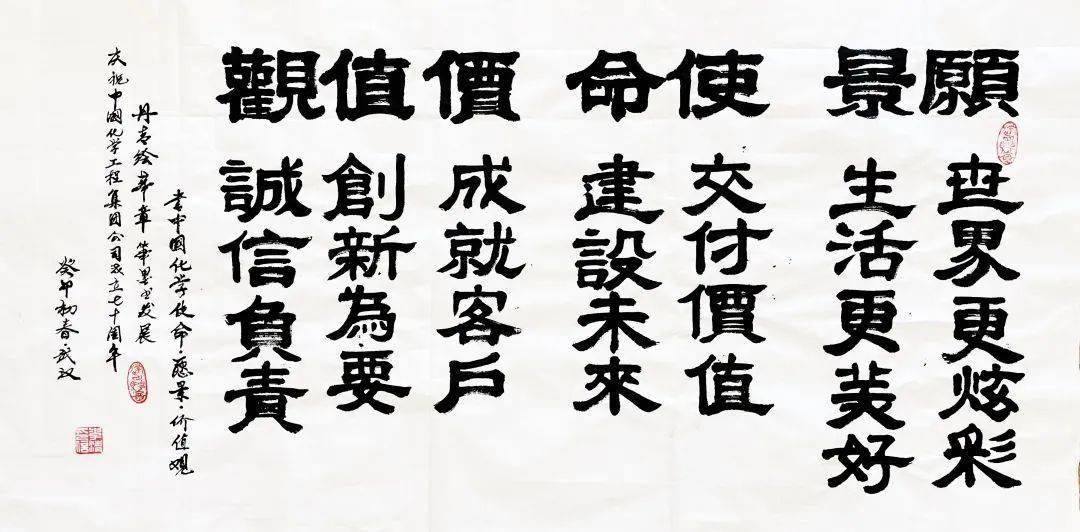 願 世界更炫彩
景 生活更美好
使 交付價值
命 建設未來
價 成就客戶
值 創新為要
觀 誠信負責
书中國化学使命·愿景·价值观
丹青绘华章 筆墨书发展
庆祝中國化学工程集团公司成立七十周年
癸卯初春·武汉